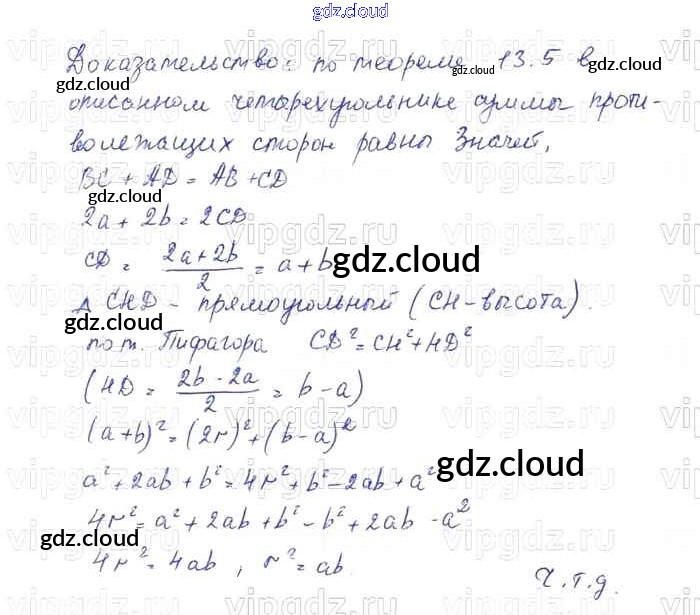 gdz.cloud
Доказательство: по теореме 13.5 в
описанном четырехугольнике суммы проти-
волежащих сторон равны Значит,
BC + AD = AB + CD
2a + 2b = 2CD
CD = (2a+2b)/2 = a + b
Δ CHD - прямоугольный (CH-высота).
по т. Пифагора CD² = CH² + HD²
(HD = (2b - 2a)/2 = b - a)
(a+b)² = (2r)² + (b-a)²
a² + 2ab + b² = 4r² + b² - 2ab + a²
4r² = a² + 2ab + b² - b² + 2ab - a²
4r² = 4ab, r² = ab.
Ч.т.д.